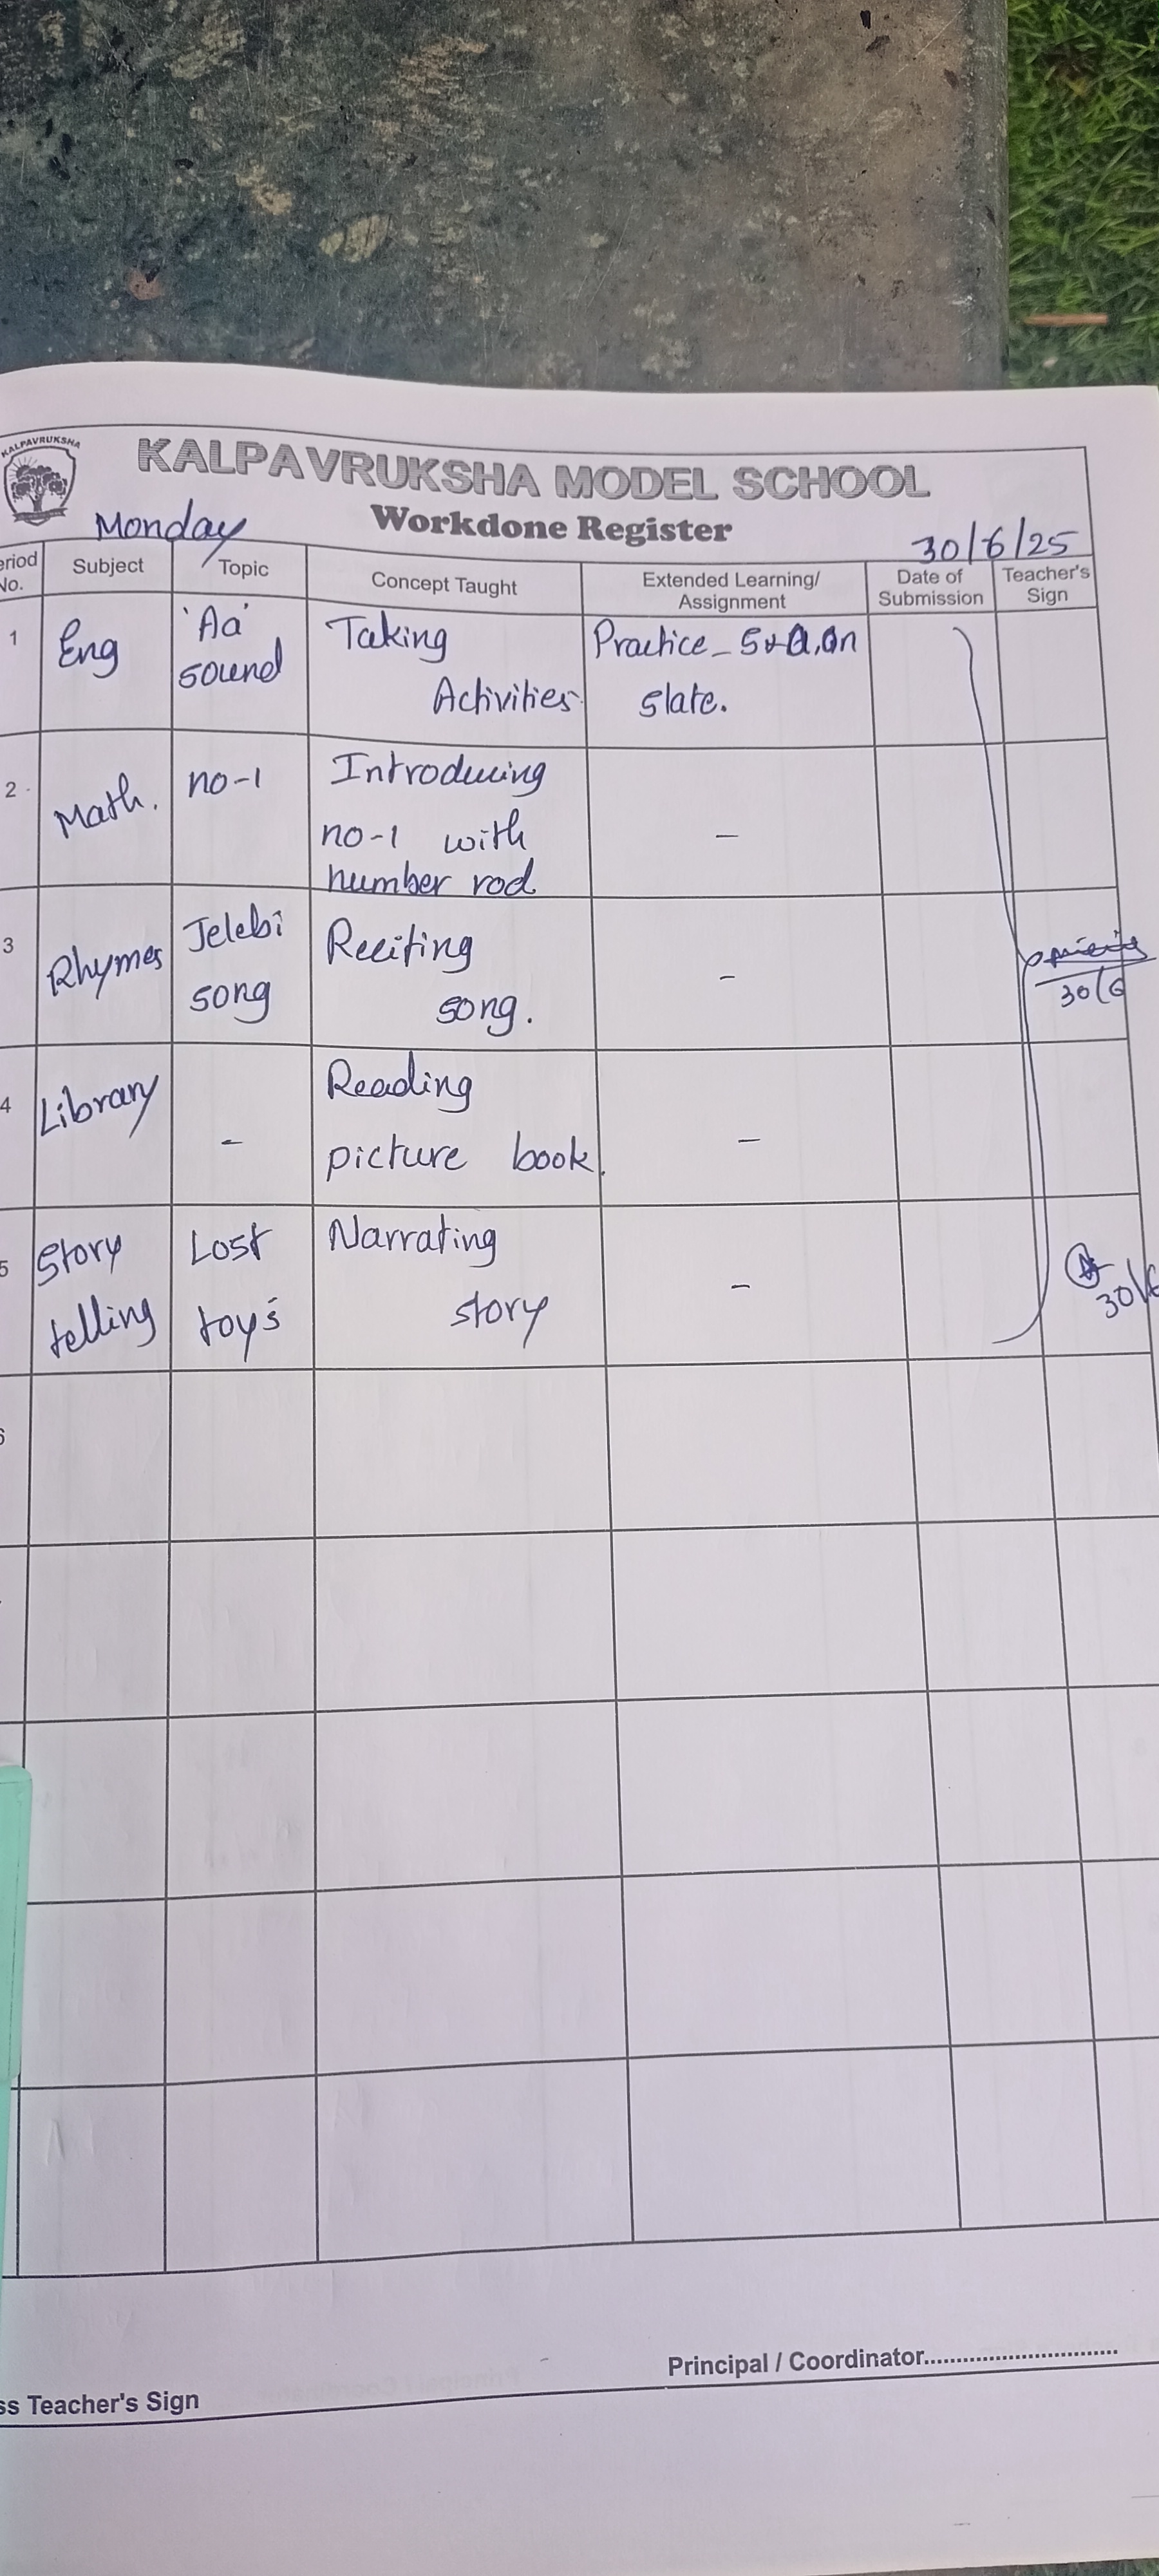 KALPAVRUKSHA
KALPAVRUKSHA MODEL SCHOOL
Workdone Register
Monday
30/6/25
eriod No.
Subject
Topic
Concept Taught
Extended Learning/
Assignment
Date of
Submission
Teacher's
Sign
1
Eng
'Aa'
sound
Taking
Activities
Practice
on
slate.
2
Math.
no-1
Introducing
no-1 with
number rod
-
3
Rhymes
Jelebi
song
Reciting
song.
-
30/6
4
Library
-
Reading
picture book.
-
5
Story
telling
Lost
toy's
Narrating
story
-
30/6
6
Principal / Coordinator..............................
ss Teacher's Sign